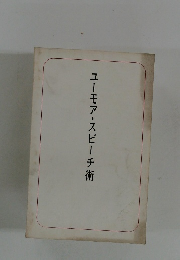 ユーモア・スピーチ術